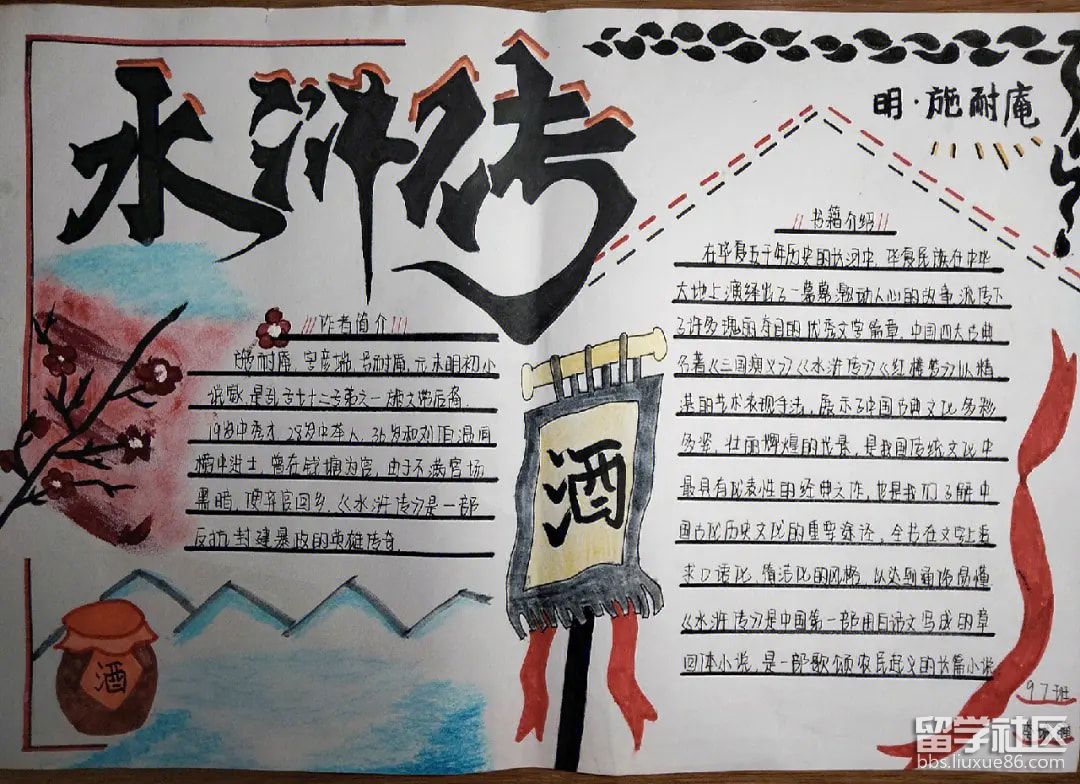 水浒传
明·施耐庵
作者简介
施耐庵,字彦端,号耐庵,元末明初小
说家,是孔子七十二弟子之一施之常后裔
19岁中秀才,28岁中举人,36岁和刘伯温同
榜中进士,曾在钱塘为官,由于不满官场
黑暗,便辞官回乡,《水浒传》是一部
反抗封建暴政的英雄传奇
酒
酒
书籍介绍
在华夏五千年历史的长河中,华夏民族在中华
大地上演绎出了一幕幕激动人心的故事,流传下
了许多瑰丽夺目的优秀文字篇章,中国四大古典
名著《三国演义》《水浒传》《红楼梦》以精
湛的艺术表现手法,展示了中国古典文化多彩
多姿,壮丽辉煌的代表,是我国传统文化中
最具有代表性的经典之作,也是我们了解中
国古代历史文化的重要途径,全书在文字上追
求口语化,简洁化的风格,以达到通俗易懂
《水浒传》是中国第一部用白话文写成的章
回体小说,是一部歌颂农民起义的长篇小说
97班
留学社区
bbs.liuxue86.com